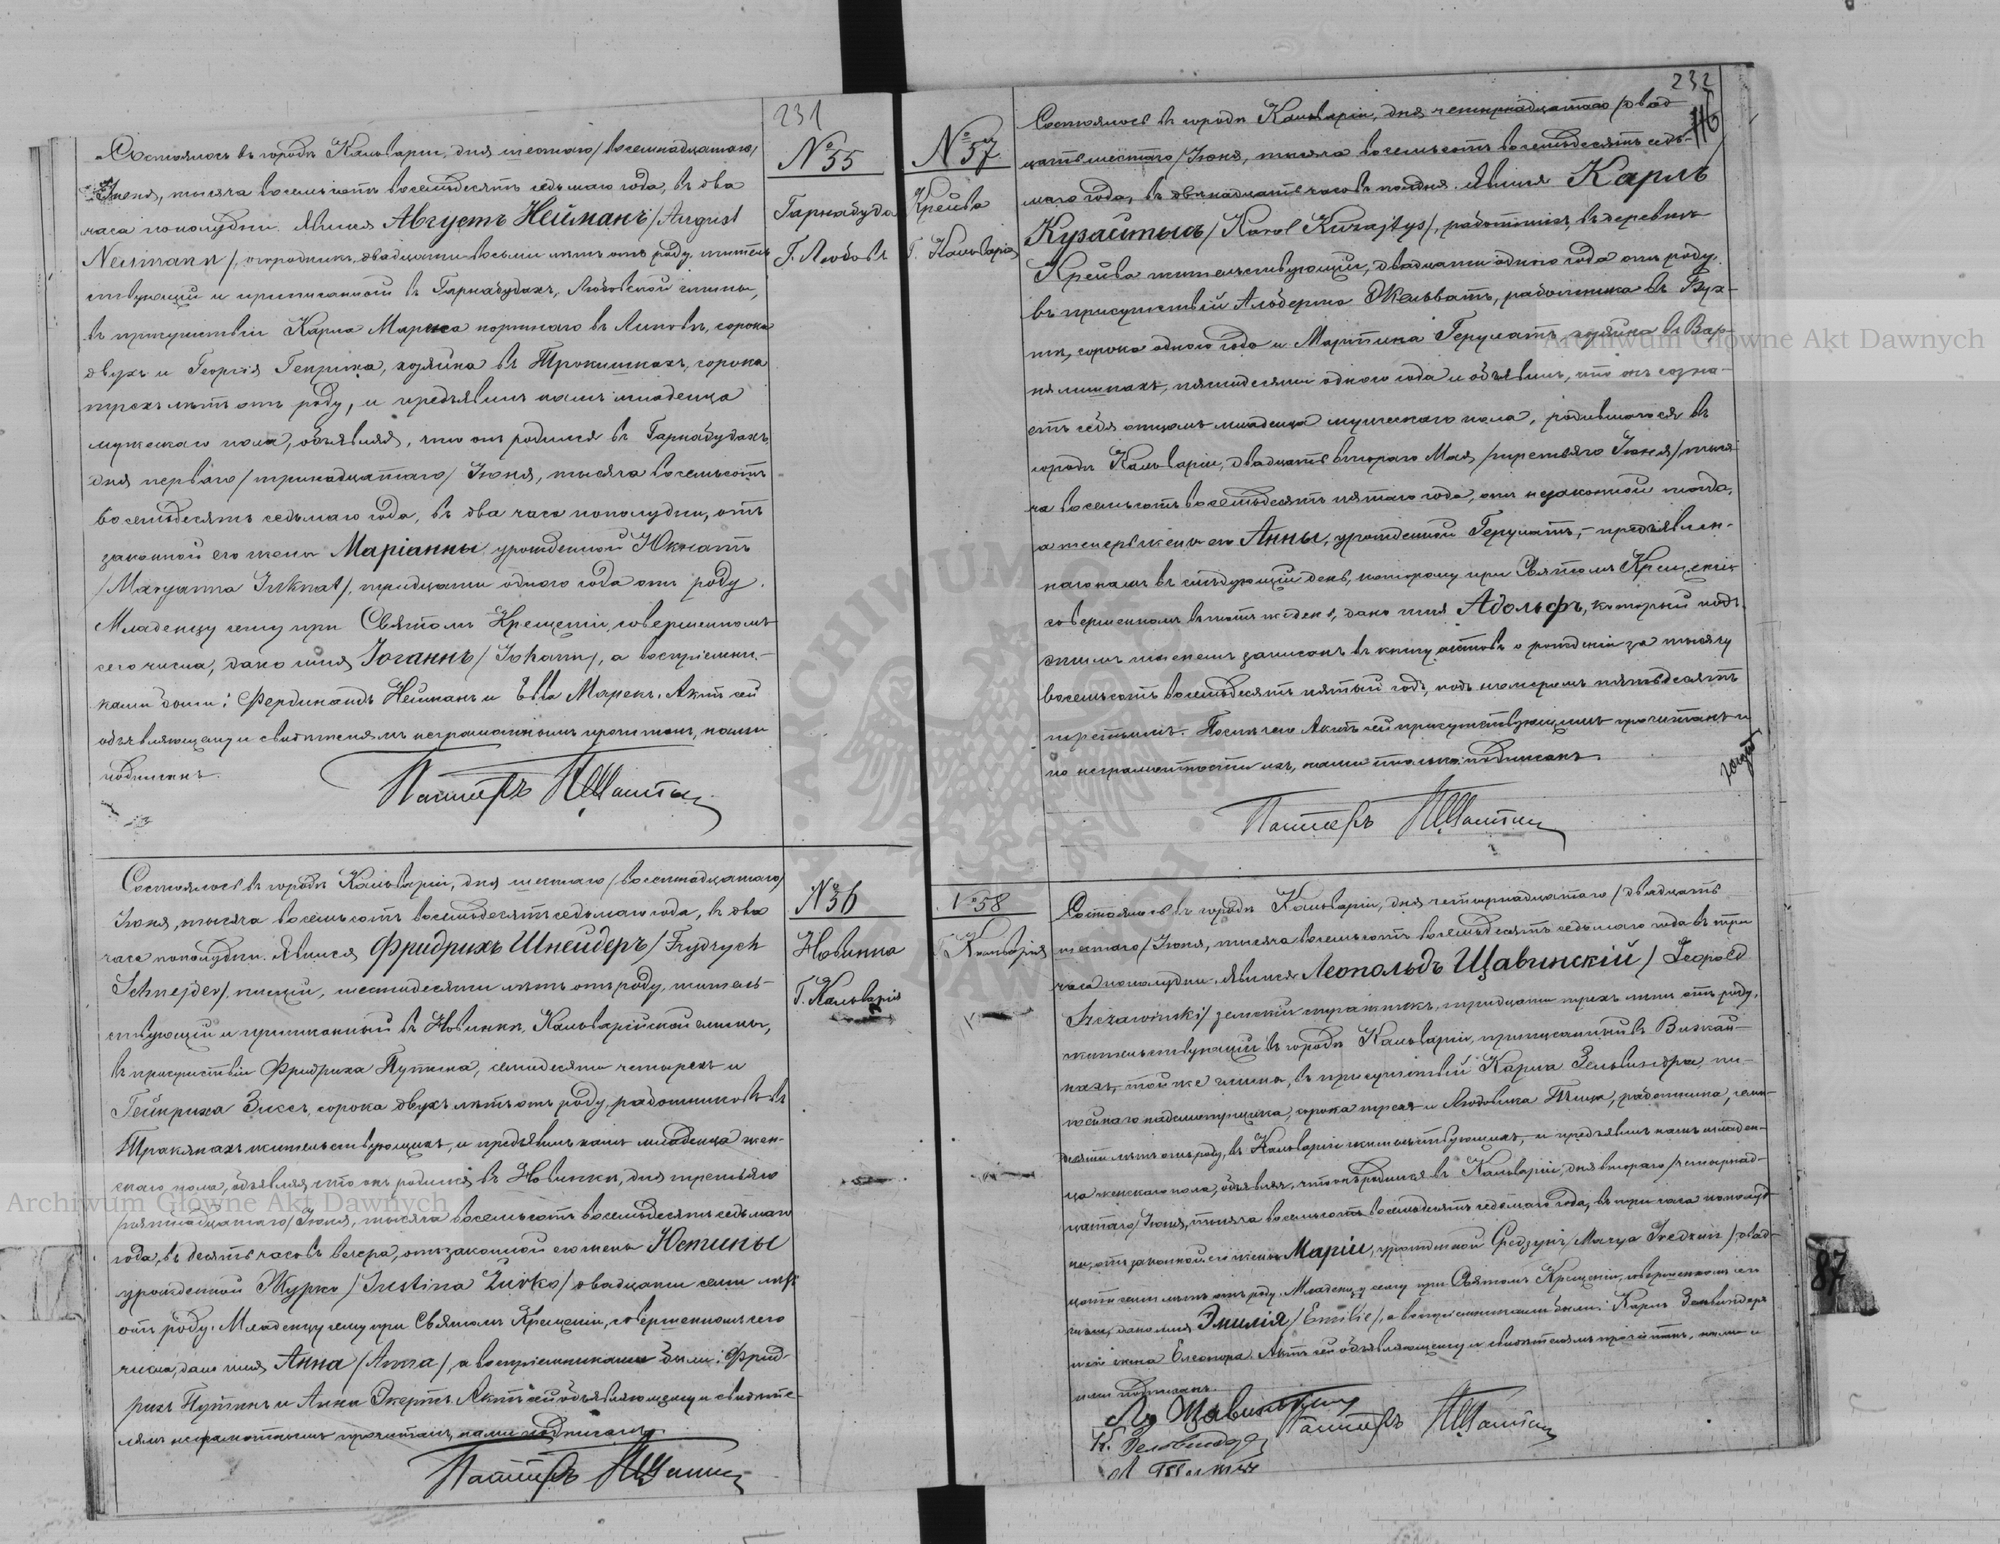 231
№ 55
Гарнабуда
Г. Любовъ
Состоялось въ городѣ Кальваріи, дня шестаго /восемнадцатаго/
Іюня, тысяча восемьсотъ восемьдесятъ седьмаго года, въ два
часа пополудни. Явился Августъ Нейманъ /August
Neumann/, огородникъ, двадцати восьми лѣтъ отъ роду, житель-
ствующій и приписанной въ Гарнабудахъ, Любовской гмины,
въ присутствіи Карла Марека портнаго въ сорока
двухъ и Георгія Генриха, хозяина въ Трокишкахъ, сорока
трехъ лѣтъ отъ роду, и предъявилъ намъ младенца
мужескаго пола, объявляя, что онъ родился въ Гарнабудахъ,
дня перваго /тринадцатаго/ Іюня, тысяча восемьсотъ
восемьдесятъ седьмаго года, въ два часа пополудни, отъ
законной его жены Маріанны, урожденной Юкнатъ
/Maryanna Juknat/, тридцати одного года отъ роду.
Младенцу сему при Святомъ Крещеніи, совершенномъ
сего числа, дано имя Іоганнъ /Johann/, а воспріемни-
ками были: Фердинандъ Нейманъ и Ева Марекъ. Актъ сей
объявляющему и свидѣтелямъ неграмотнымъ прочитанъ, нами
подписанъ.
Пасторъ
№ 56
Новинка
Г. Кальварія
Состоялось въ городѣ Кальваріи, дня шестаго /восемнадцатаго/
Іюня, тысяча восемьсотъ восемьдесятъ седьмаго года, въ два
часа пополудни. Явился Фридрихъ Шнейдеръ /Frydrych
Schnejder/, нищій, шестидесяти лѣтъ отъ роду, житель-
ствующій и приписанный въ Новинкѣ, Кальварійской гмины,
въ присутствіи Фридриха Путнина, семидесяти четырехъ и
Гейнриха Зиксъ, сорока двухъ лѣтъ отъ роду, работниковъ въ
Тракянахъ жительствующихъ, и предъявилъ намъ младенца жен-
скаго пола, объявляя, что онъ родился въ Новинкѣ, дня третьяго
/пятнадцатаго/ Іюня, тысяча восемьсотъ восемьдесятъ седьмаго
года, въ десять часовъ вечера, отъ законной его жены Юстины
урожденной Журко /Justina Żurko/ двадцати семи лѣтъ
отъ роду. Младенцу сему при Святомъ Крещеніи, совершенномъ сего
числа, дано имя Анна /Anna/, а воспріемниками были: Фрид-
рихъ Путнинъ и Анна Экертъ. Актъ сей объявляющему и свидѣте-
лямъ неграмотнымъ прочитанъ, нами подписанъ.
Пасторъ
232
116
№ 57
Крейва
Г. Кальварія
Состоялось въ городѣ Кальваріи, дня четырнадцатаго /двад-
цать шестаго/ Іюня, тысяча восемьсотъ восемьдесятъ седь-
маго года, въ двѣнадцать часовъ полдня. Явился Карлъ
Кузайтысъ /Karol Kuzajtys/, работникъ, въ деревнѣ
Крейва жительствующій, двадцати одного года отъ роду,
въ присутствіи Альберта работника въ Бух-
тѣ, сорока одного года и Мартина Герулатъ, хозяина въ Вар-
нялишкахъ, пятидесяти одного года и объявилъ, что онъ созна-
етъ себя отцомъ младенца мужескаго пола, родившагося въ
городѣ Кальваріи, двадцать втораго Мая /третьяго Іюня/ тыся-
ча восемьсотъ восемьдесятъ пятаго года, отъ незаконной тогда,
а теперь жены его Анны, урожденной Герулатъ, - предъявлен-
наго намъ въ слѣдующій день, которому при Святомъ Крещеніи
совершенномъ въ тотъ же день, дано имя Адольфъ, который подъ
этимъ именемъ записанъ въ книгу актовъ о рожденіи за тысячу
восемьсотъ восемьдесятъ пятый годъ, подъ номеромъ пятьдесятъ
третьимъ. Послѣ чего Актъ сей присутствующимъ прочитанъ и
по неграмотности ихъ, нами только подписанъ.
Пасторъ
№ 58
Г. Кальварія
Состоялось въ городѣ Кальваріи, дня четырнадцатаго /двадцать
шестаго/ Іюня, тысяча восемьсотъ восемьдесятъ седьмаго года въ три
часа пополудни. Явился Леопольдъ Щавинскій /Leopold
Szczawinski/ земскій стражникъ, тридцати трехъ лѣтъ отъ роду,
жительствующій въ городѣ Кальваріи, приписанный въ
нахъ, той же гмины, въ присутствіи Карла Зельвиндера,
надсмотрщика, сорока трехъ и Людовика работника,
десяти лѣтъ отъ роду, въ Кальваріи жительствующихъ, и предъявилъ намъ младен-
ца женскаго пола, объявляя, что онъ родился въ Кальваріи, дня втораго /четырнад-
цатаго/ Іюня, тысяча восемьсотъ восемьдесятъ седьмаго года, въ три часа пополуд-
ни, отъ законной его жены Маріи, урожденной Средзунъ /Marya Sredzun/ двад-
цати семи лѣтъ отъ роду. Младенцу сему при Святомъ Крещеніи, совершенномъ сего
числа, дано имя Эмилія /Emilie/, а воспріемниками были: Карлъ Зельвиндеръ
и его жена Елеонора. Актъ сей объявляющему и свидѣтелямъ прочитанъ, нами и
ими подписанъ.
Щавинскій
Пасторъ
К. Зельвиндеръ
87
Archiwum Główne Akt Dawnych
Archiwum Główne Akt Dawnych